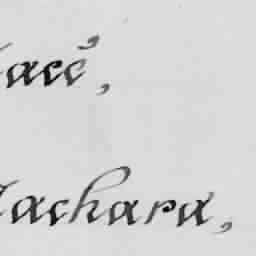 acé,
achara,